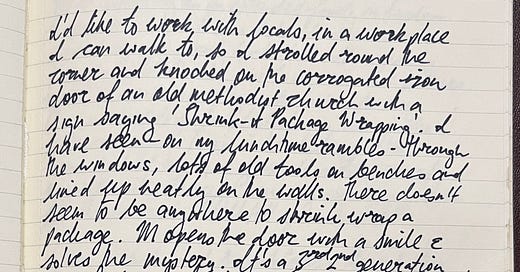 I'd like to work with locals, in a workplace
I can walk to, so I strolled round the
corner and knocked on the corrogated iron
door of an old methodist church with a
sign saying 'Shrink-it Package Wrapping'. I
have seen - on my lunchtime rambles - through
the windows, lots of old tools on benches and
lined up neatly on the walls. There doesn't
seem to be anywhere to shrink wrap a
package. M opens the door with a smile &
solves the mystery. It's a 2nd generation